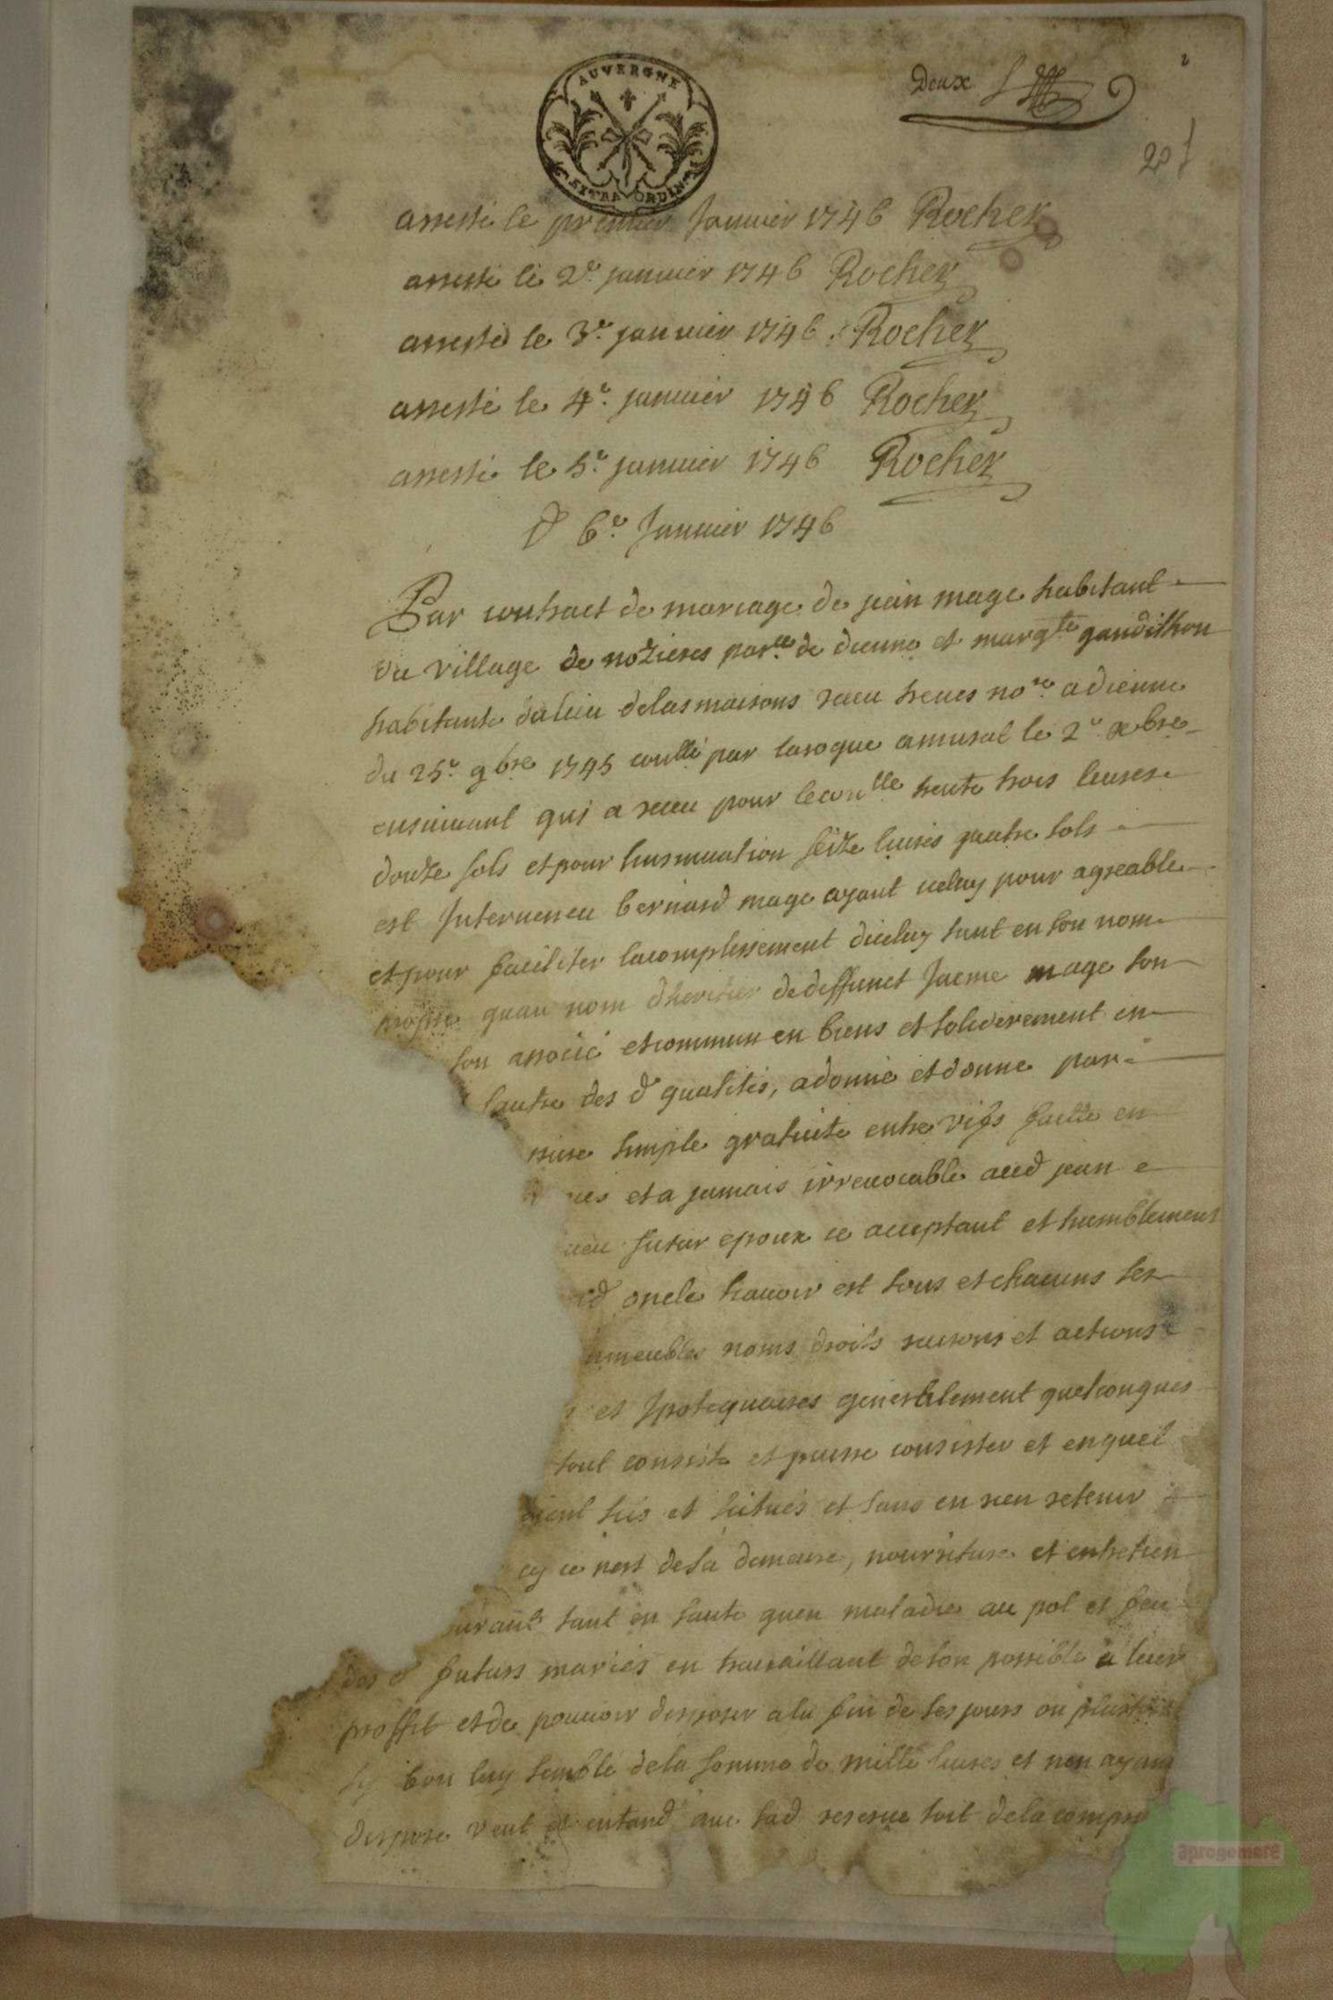 AUVERGNE
EXTRAORDIN
Deux
2
arresté le premier Janvier 1746 Rocher
arresté le 2e. janvier 1746 Rocher
arresté le 3e. janvier 1746 Rocher
arresté le 4e. janvier 1746 Rocher
arresté le 5e. janvier 1746 Rocher
D 6e. Janvier 1746
Par contract de mariage de jean mage habitant
du village de nozieres parlle de dienne et margte gandilhon
habitante du lieu delas maisons receu no.re a dienne
du 25e. 9bre 1745 conllé par laroque a murat le 2e. xbre
ensuivant qui a receu pour le conlle trente trois livres
douze sols et pour linsinuation seize livres quatre sols
est Interveneu bernard mage ayant iceluy pour agreable
et pour faciliter lacomplissement diceluy tant en son nom
propre quau nom dheritier de deffunct Jacme mage son
son associé et commun en biens et soliderement un
lautre des d qualités, a donné et donne par
pure simple gratuite entre vifs faitte en
et a jamais irrevocable aud jean
neveu futur epoux ce acceptant et humblement
oncle scavoir est tous et chacuns ses
immeubles noms droits raisons et actions
et Ipotequaires generallement quelconques
tout consiste et puisse consister et en quel
soient sis et situés et sans en rien retenir
cy ce nest de sa demeure, nourriture et entretien
durant tant en santé quen maladie au pot et feu
des d futurs mariés en travaillant de son possible a leur
proffit et de pouvoir disposer a la fin de ses jours ou plustost
sy bon luy semble de la somme de mille livres et nen ayant
disposé veut et entend que sad reserve soit de la compr
aprogemere